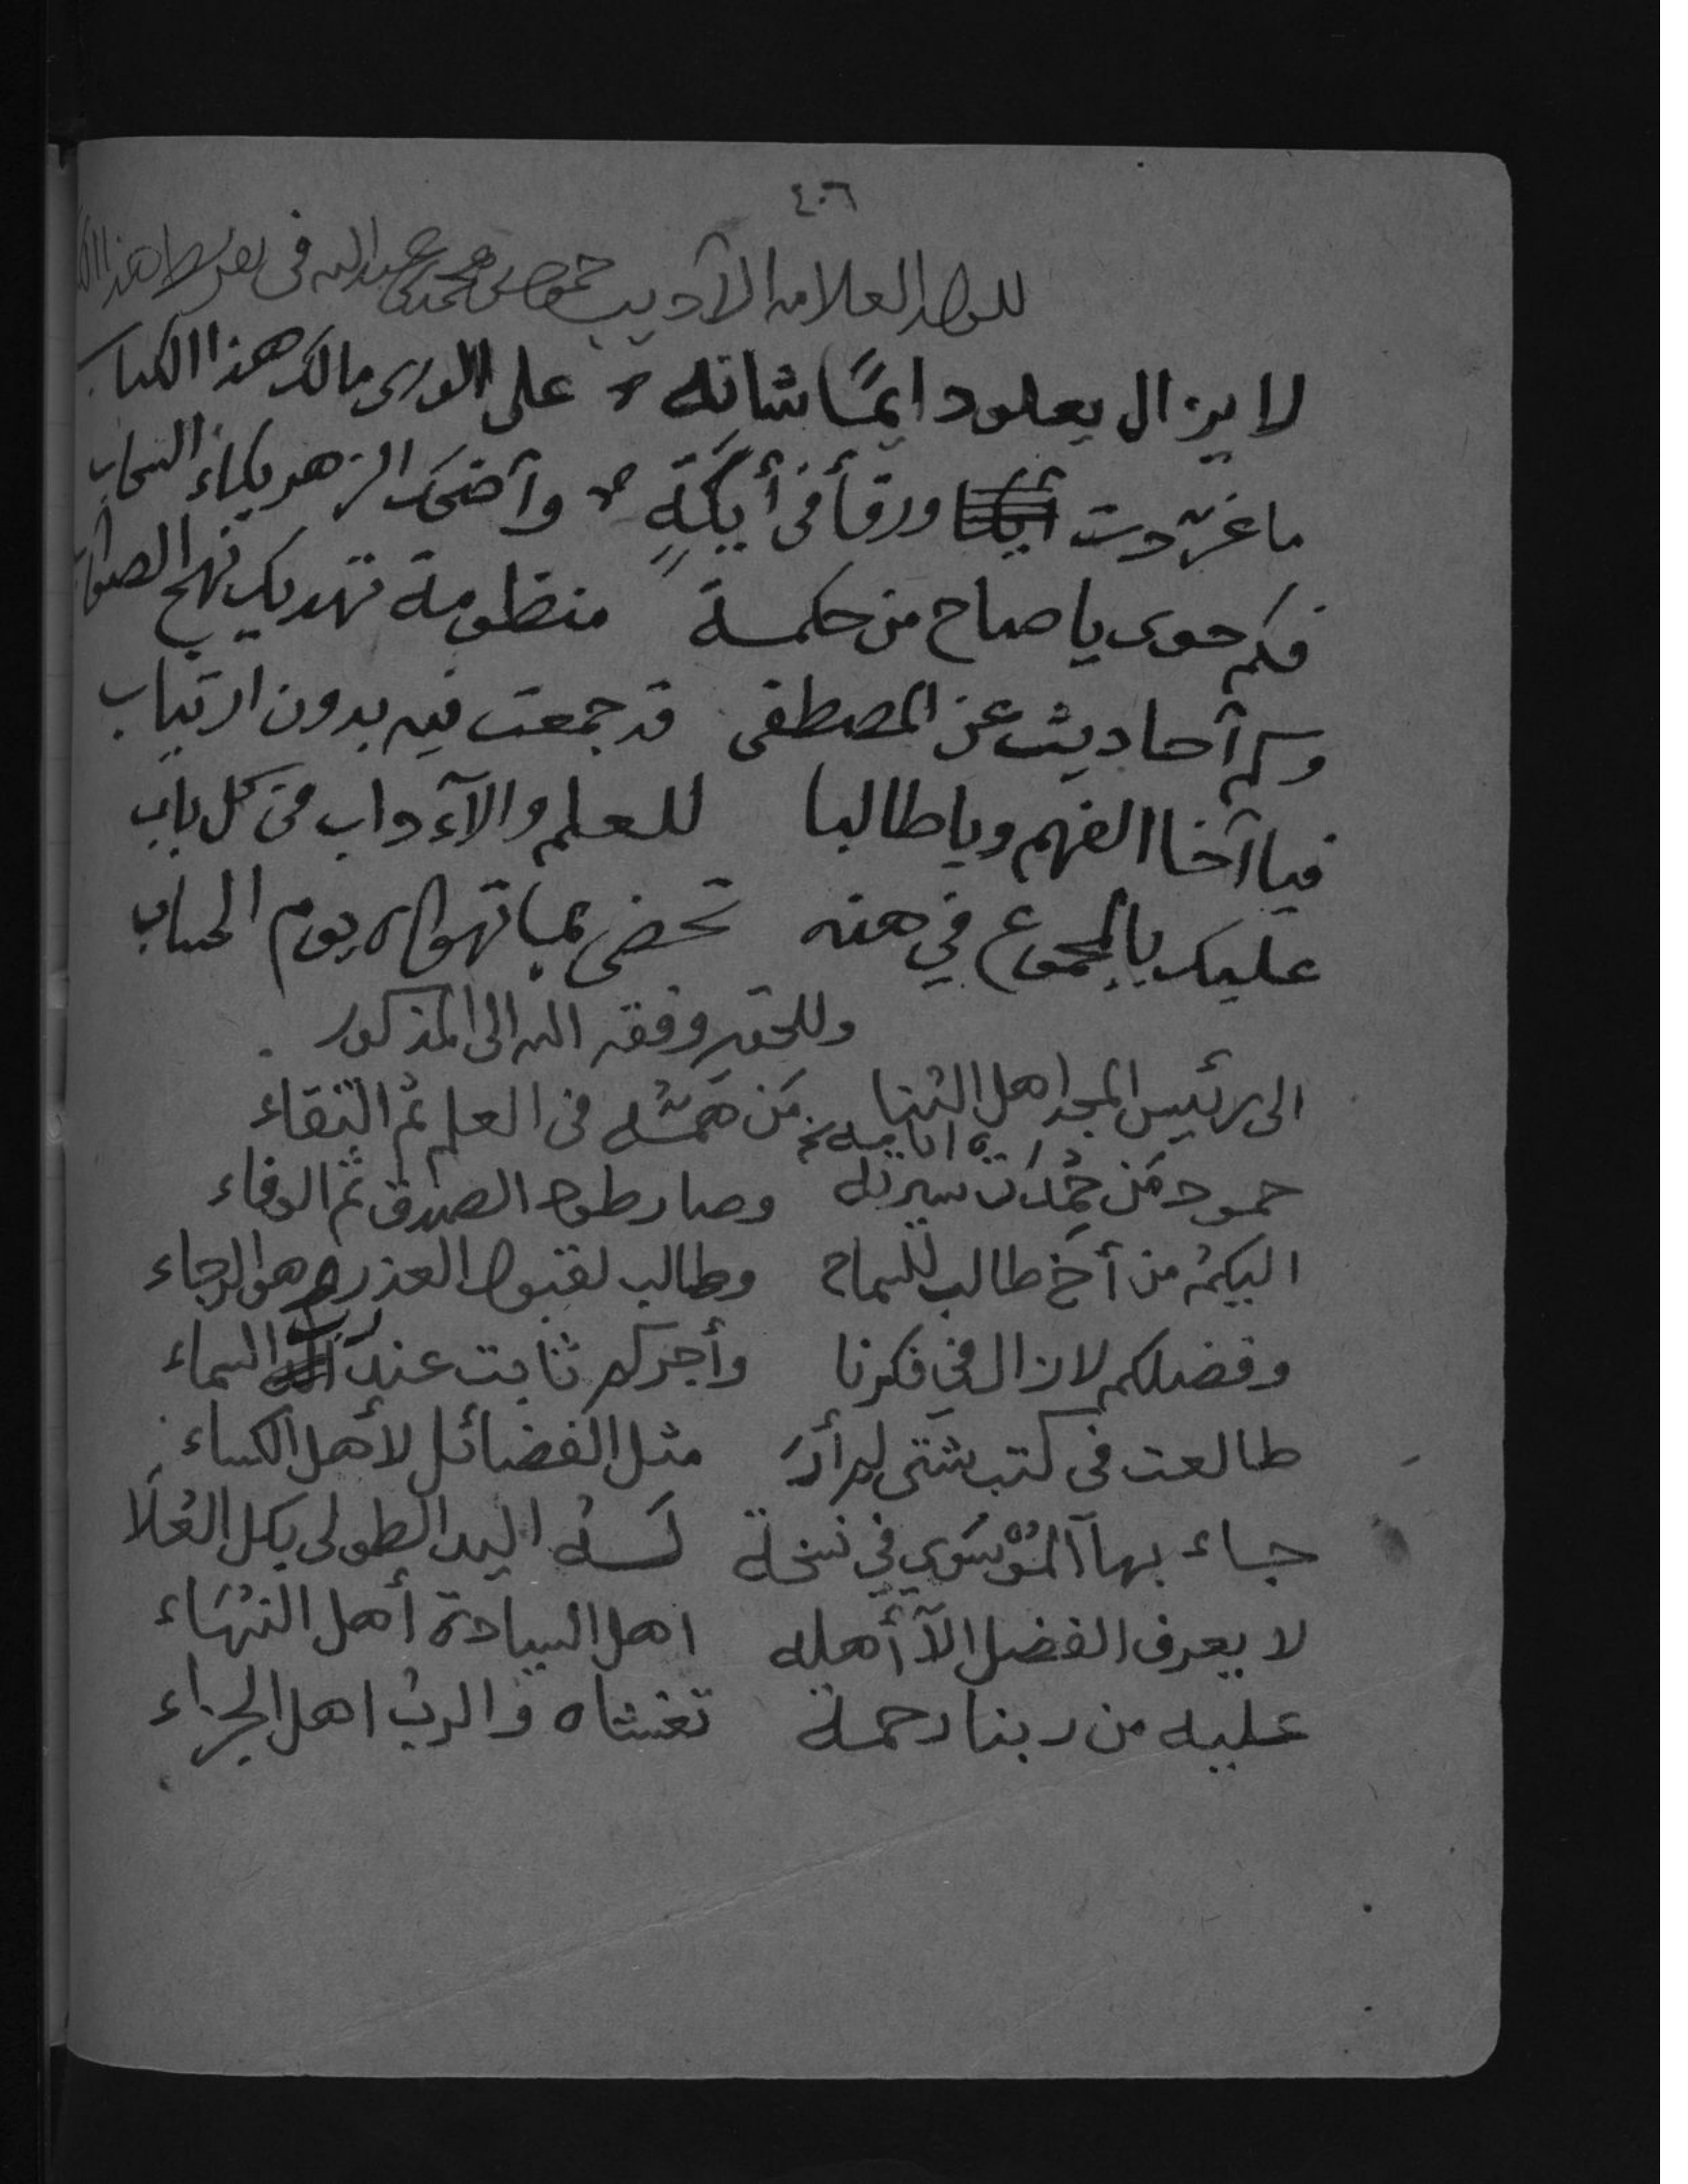 ٤٠٦
للولد العلامه الآديب حمود بن محمد بن عبدالله فى تقريظ هذا
لا يزال يعلو دايمًا شانه على الورى مالك هذا الكتاب
ما غرّدت ورقأ فى أيكَةٍ وآضحك الزهر بكاء السحاب
فكم حوى يا صاح من حكمة منظومة تهديك نهج الصواب
وكم آحاديث عن المصطفى قد جمعت فيه بدون ارتياب
فيا آخا الفهم ويا طالبا للعلم والآداب من كل باب
عليك بالمجموع في هذه تحضى بما تهواه يوم الحساب
وللحقير وفقه الله الى المذكور
الى رئيس المجد اهل الثنا مَن همّه فى العلم ثم التقاء
حمود من حُمِدَت سيرته وصار طود الصدق ثم الوفاء
اليكمُ من أخ طالب للسماح وطالب لقبول العذر وهو الرجاء
وفضلكم لازال في فكرنا وأجركم ثابت عند رب السماء
طالعت فى كتب شتى لم أرَ مثل الفضائل لأهل الكساء
جاء بها المُوْسَوي في نسخة لَهُ اليد الطولى بكل العُلَا
لا يعرف الفضل الآ أهله اهل السيادة أهل النُهَاء
عليه من ربنا رحمة تغشاه والربُ اهل الجزاء